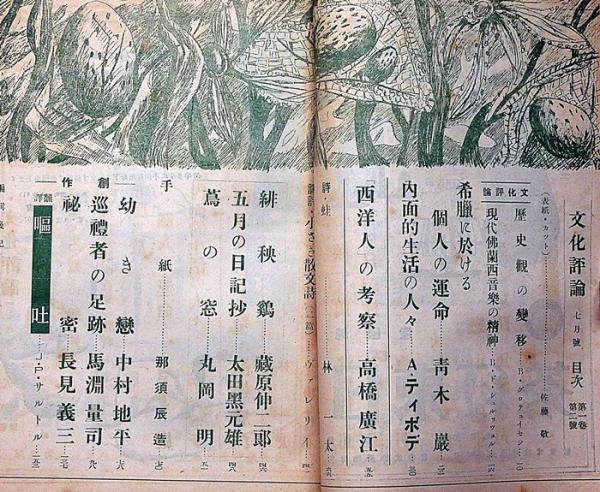 文化評論 七月號 目次 第一卷 第二號
(表紙・カット)……佐藤 敬
文化評論
歷史觀の變移
現代佛蘭西音樂の精神
希臘に於ける
個人の運命……靑木 巖
內面的生活の人々……A・ティボデ
「西洋人」の考察……高橋廣江
詩・蛙……林 一太
小さき散文詩……ヴァレリイ
緋秧鷄……藏原伸二郞
五月の日記抄……太田黑元雄
蔦の窓……丸岡 明
手紙……那須辰造
創作
幼き戀……中村地平
巡禮者の足跡……馬淵量司
祕密……長見義三
嘔吐……J・P・サルトル